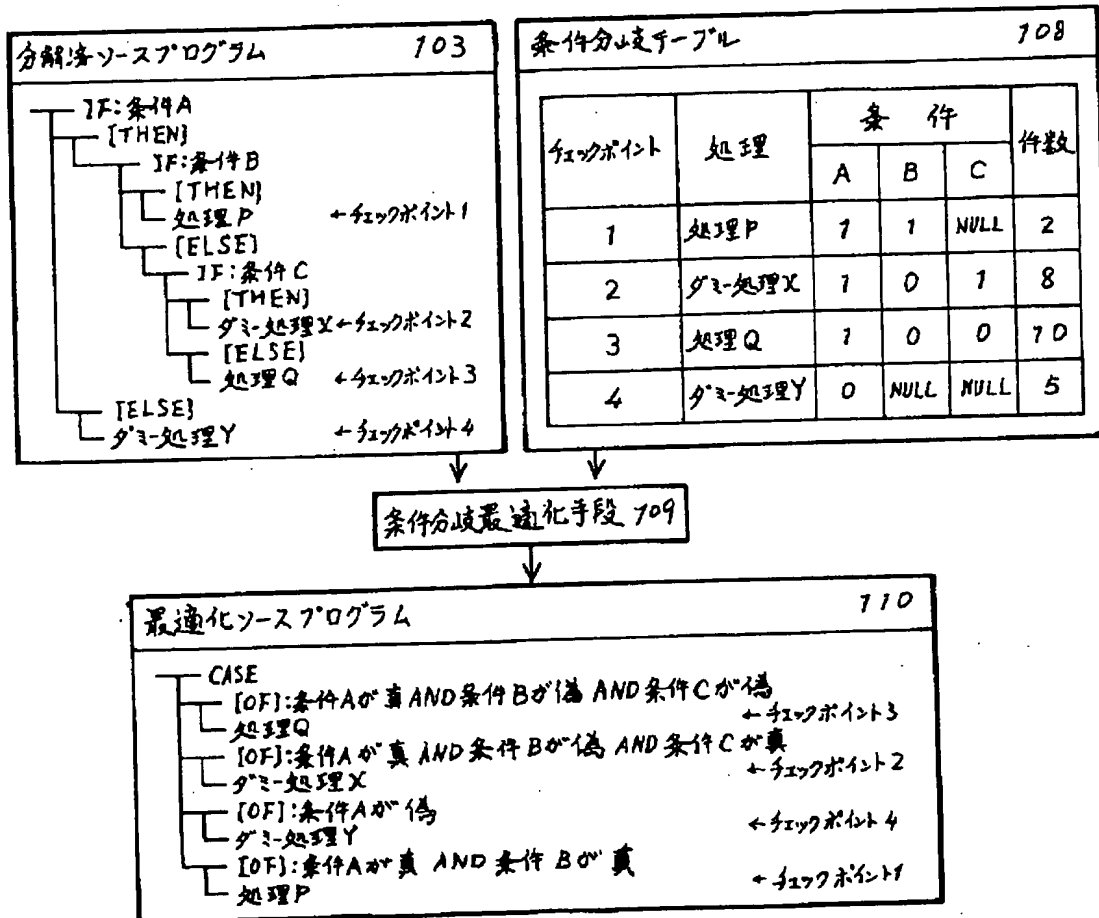 分解済ソースプログラム 103
IF:条件A
[THEN]
IF:条件B
[THEN]
処理P ←チェックポイント1
[ELSE]
IF:条件C
[THEN]
ダミー処理X ←チェックポイント2
[ELSE]
処理Q ←チェックポイント3
[ELSE]
ダミー処理Y ←チェックポイント4
条件分岐テーブル 108
チェックポイント 処理 条件 件数
A B C
1 処理P 1 1 NULL 2
2 ダミー処理X 1 0 1 8
3 処理Q 1 0 0 10
4 ダミー処理Y 0 NULL NULL 5
条件分岐最適化手段 109
最適化ソースプログラム 110
CASE
[OF]:条件Aが真 AND 条件Bが偽 AND 条件Cが偽
処理Q ←チェックポイント3
[OF]:条件Aが真 AND 条件Bが偽 AND 条件Cが真
ダミー処理X ←チェックポイント2
[OF]:条件Aが偽
ダミー処理Y ←チェックポイント4
[OF]:条件Aが真 AND 条件Bが真
処理P ←チェックポイント1